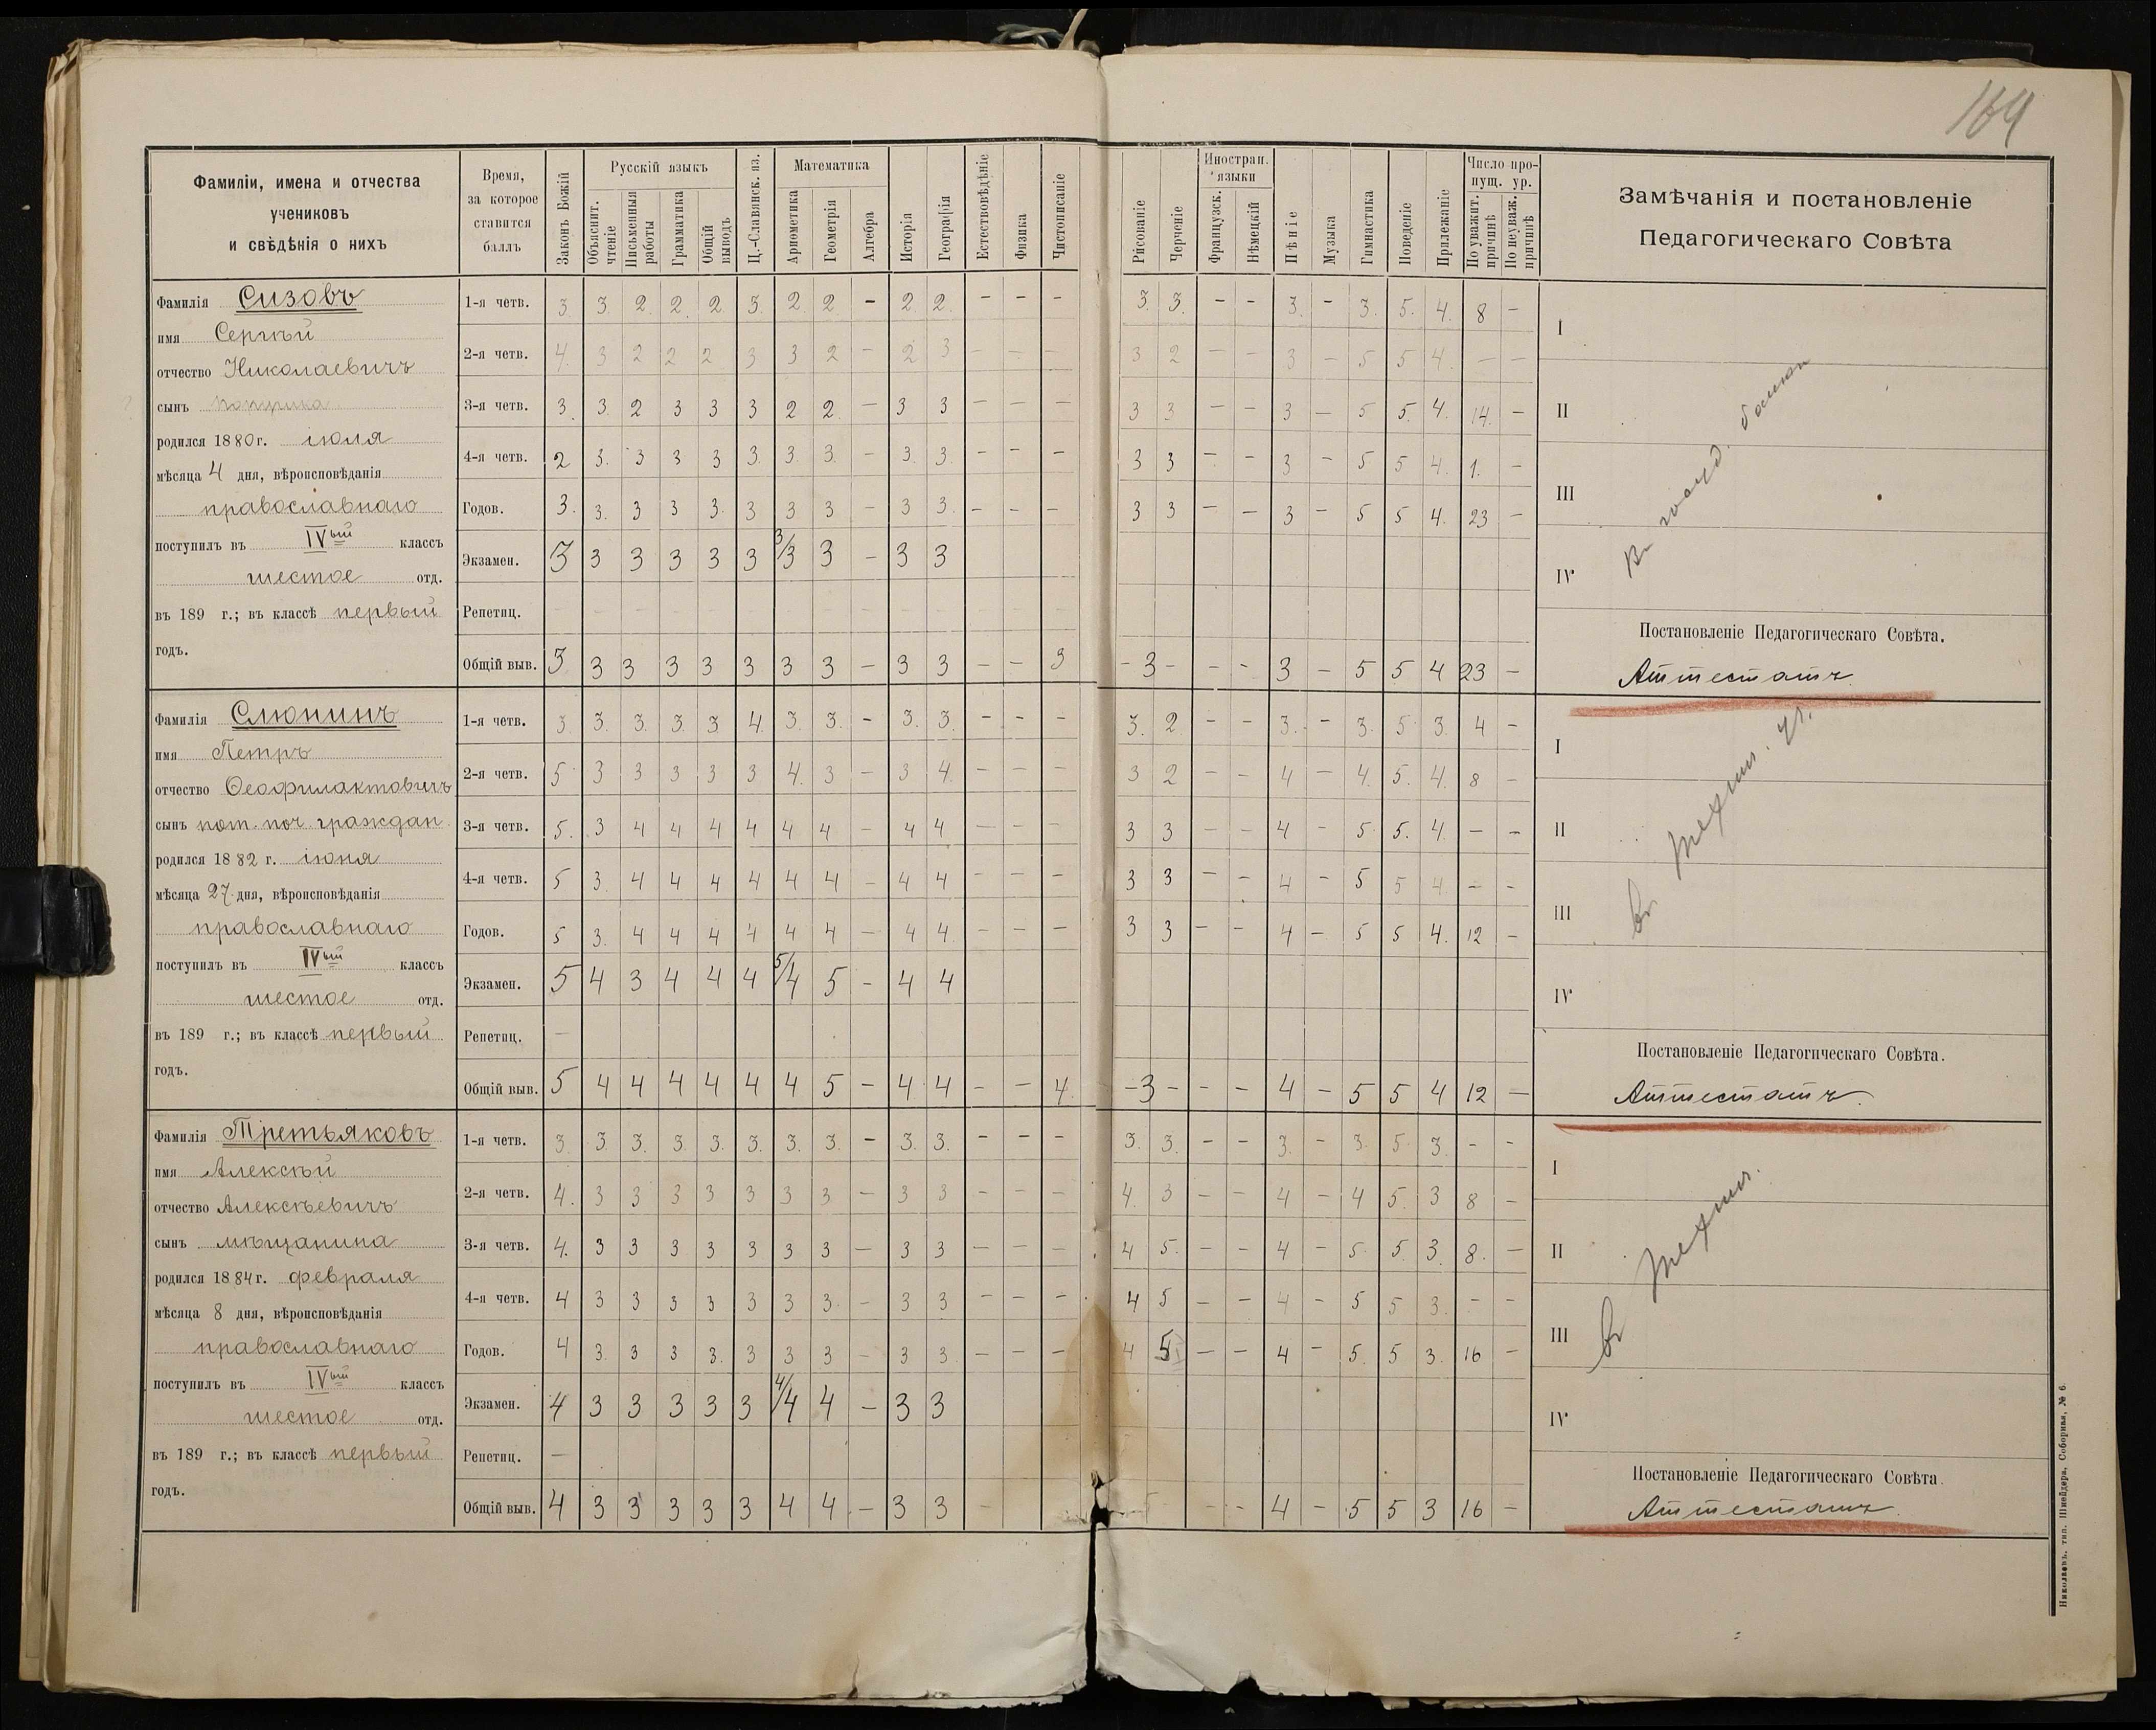 164
Фамиліи, имена и отчества
учениковъ
и свѣдѣнія о нихъ
Время,
за которое
ставится
баллъ
Законъ Божій
Русскій языкъ
Объяснит. чтеніе
Письменныя работы
Грамматика
Общій выводъ
Ц.-Славянск. яз.
Математика
Ариѳметика
Геометрія
Алгебра
Исторія
Географія
Естествовѣдѣніе
Физика
Чистописаніе
Рисованіе
Черченіе
Иностран. языки
Французск.
Нѣмецкій
Пѣніе
Музыка
Гимнастика
Поведеніе
Прилежаніе
Число пропущ. ур.
По уважит. причинѣ
По неуваж. причинѣ
Замѣчанія и постановленіе
Педагогическаго Совѣта
Фамилія Сизовъ
имя Сергѣй
отчество Николаевичъ
сынъ
родился 1880 г. іюля
мѣсяца 4 дня, вѣроисповѣданія
православнаго
поступилъ въ IVый классъ
шестое отд.
въ 189 г.; въ классѣ первый
годъ.
1-я четв. 3. 3. 2. 2. 2. 3. 2. 2. – 2. 2. – – – 3. 3. – – 3. – 3. 5. 4. 8 –
2-я четв. 4. 3 2 2 2 3 3 2 – 2 3 – – – 3 2 – – 3 – 5 5 4. – –
3-я четв. 3. 3. 2 3 3 3 2 2. – 3 3 – – – 3 3 – – 3 – 5 5. 4. 14. –
4-я четв. 2 3. 3 3 3 3. 3. 3. – 3. 3. – – – 3 3 – – 3 – 5 5 4. 1. –
Годов. 3. 3. 3 3 3. 3 3 3 – 3 3. – – – 3 3 – – 3 – 5 5 4. 23 –
Экзамен. 3 3 3 3 3 3 3/3 3 – 3 3
Репетиц.
Общій выв. 3 3 3 3 3 3 3 3 – 3 3 – – 3 – 3 – – – 3 – 5 5 4 23 –
I
II
III
IV
Постановленіе Педагогическаго Совѣта.
Аттестатъ.
Фамилія Слюнинъ
имя Петръ
отчество Ѳеофилактовичъ
сынъ пот. поч. граждан.
родился 1882 г. іюня
мѣсяца 27 дня, вѣроисповѣданія
православнаго
поступилъ въ IVый классъ
шестое отд.
въ 189 г.; въ классѣ первый
годъ.
1-я четв. 3. 3. 3. 3. 3. 4. 3. 3. – 3. 3. – – – 3. 2. – – 3. – 3. 5. 3. 4 –
2-я четв. 5 3 3 3 3 3 4. 3 – 3 4. – – – 3 2 – – 4 – 4. 5. 4. 8 –
3-я четв. 5. 3 4 4 4 4 4 4 – 4 4 – – – 3 3 – – 4 – 5 5. 4. – –
4-я четв. 5 3. 4 4 4 4 4 4 – 4 4 – – – 3 3 – – 4 – 5 5 4 – –
Годов. 5 3. 4 4 4 4 4 4 – 4 4. – – – 3 3 – – 4 – 5 5 4. 12 –
Экзамен. 5 4 3 4 4 4 5/4 5 – 4 4
Репетиц. –
Общій выв. 5 4 4 4 4 4 4 5 – 4 4 – – 4. – 3 – – – 4 – 5 5 4 12 –
I
II
III
IV
въ техни. уч.
Постановленіе Педагогическаго Совѣта.
Аттестатъ.
Фамилія Третьяковъ
имя Алексѣй
отчество Алексѣевичъ
сынъ мѣщанина
родился 1884 г. февраля
мѣсяца 8 дня, вѣроисповѣданія
православнаго
поступилъ въ IVый классъ
шестое отд.
въ 189 г.; въ классѣ первый
годъ.
1-я четв. 3. 3. 3. 3. 3. 3. 3. 3. – 3. 3. – – – 3. 3. – – 3. – 3. 5. 3. – –
2-я четв. 4. 3 3 3 3 3 3 3 – 3 3 – – – 4. 3 – – 4 – 4 5. 3 8 –
3-я четв. 4. 3 3 3 3 3 3 3 – 3 3 – – – 4 5. – – 4 – 5. 5. 3. 8. –
4-я четв. 4 3 3 3 3 3 3 3. – 3 3 – – – 4 5 – – 4 – 5 5 3. – –
Годов. 4 3. 3 3 3. 3 3 3 – 3 3. – – – 4 5 – – 4 – 5. 5 3. 16 –
Экзамен. 4 3 3 3 3 3 4/4 4 – 3 3
Репетиц. –
Общій выв. 4 3 3 3 3 3 4 4 – 3 3 – – – 4 – 5 5 3 16 –
I
II
III
IV
въ техни.
Постановленіе Педагогическаго Совѣта.
Аттестатъ.
Николаевъ. тип. Шнейдера, Соборная, № 6.